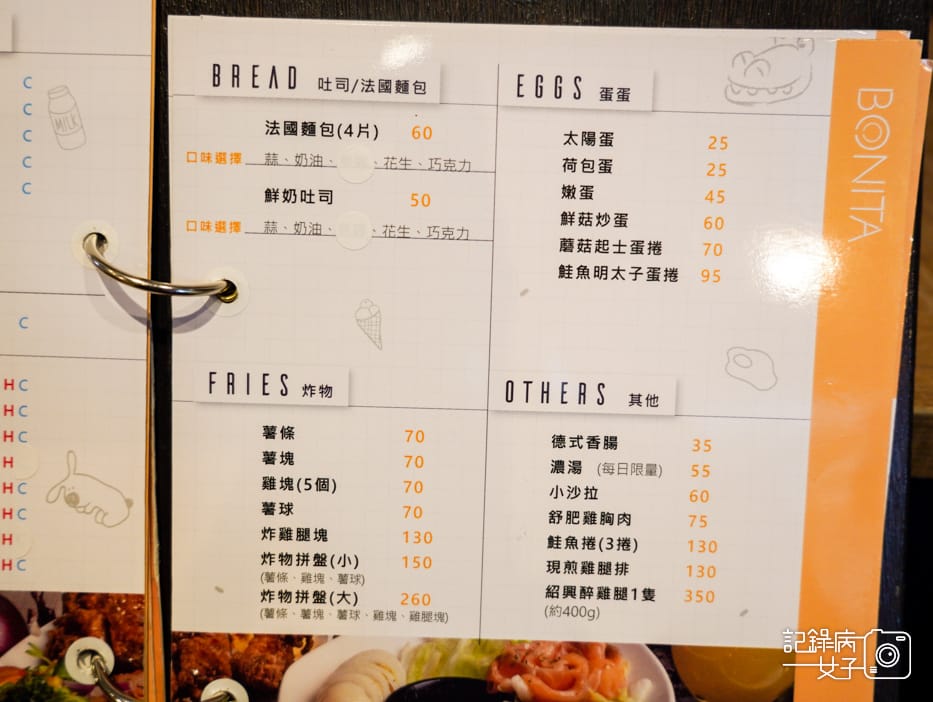 C
C
C
C
C
MILK
C
H C
H C
H C
H
H C
H C
H
H C
BREAD 吐司/法國麵包
法國麵包(4片) 60
口味選擇 蒜、奶油、、花生、巧克力
鮮奶吐司 50
口味選擇 蒜、奶油、、花生、巧克力
EGGS 蛋蛋
太陽蛋 25
荷包蛋 25
嫩蛋 45
鮮菇炒蛋 60
蘑菇起士蛋捲 70
鮭魚明太子蛋捲 95
FRIES 炸物
薯條 70
薯塊 70
雞塊(5個) 70
薯球 70
炸雞腿塊 130
炸物拼盤(小) 150
(薯條、雞塊、薯球)
炸物拼盤(大) 260
(薯條、薯塊、薯球、雞塊、雞腿塊)
OTHERS 其他
德式香腸 35
濃湯 (每日限量) 55
小沙拉 60
舒肥雞胸肉 75
鮭魚捲(3捲) 130
現煎雞腿排 130
紹興醉雞腿1隻 350
(約400g)
BONITA
記錄病
女子